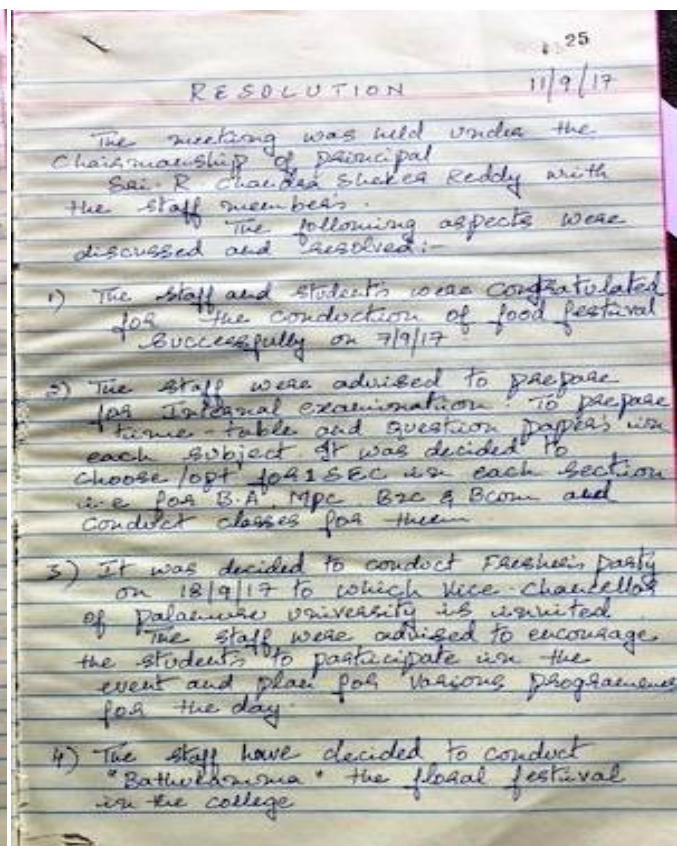 25
RESOLUTION 11/9/17
The meeting was held under the
Chairmanship of principal
Sri. R Chandra Sheker Reddy with
the staff members.
The following aspects were
discussed and resolved:-
1) The staff and students were Congratulated
for the conduction of food festival
successfully on 7/9/17
2) The staff were advised to prepare
for Internal examination. To prepare
time-table and question papers in
each subject. It was decided to
choose/opt for 1 SEC in each section
i.e for B.A, Mpc Bzc & Bcom and
Conduct classes for them
3) It was decided to conduct Fresher's party
on 18/9/17 to which Vice-Chancellor
of palamuru university is invited
The staff were advised to encourage
the students to participate in the
event and plan for various programmes
for the day.
4) The staff have decided to conduct
"Bathukamma" the floral festival
in the college